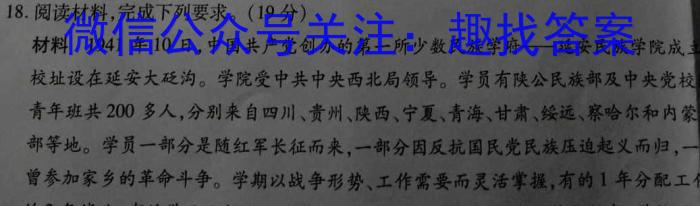 18. 阅读材料,完成下列要求。(19分)
微信公众号关注:趣找答案
材料 1941年10月,中国共产党创办的第一所少数民族学府——延安民族学院成立
校址设在延安大砭沟。学院受中共中央西北局领导。学员有陕公民族部及中央党校
青年班共200多人,分别来自四川、贵州、陕西、宁夏、青海、甘肃、绥远、察哈尔和内蒙
部等地。学员一部分是随红军长征而来,一部分因反抗国民党民族压迫起义而归,一
曾参加家乡的革命斗争。学期以战争形势、工作需要而灵活掌握,有的1年分配工作